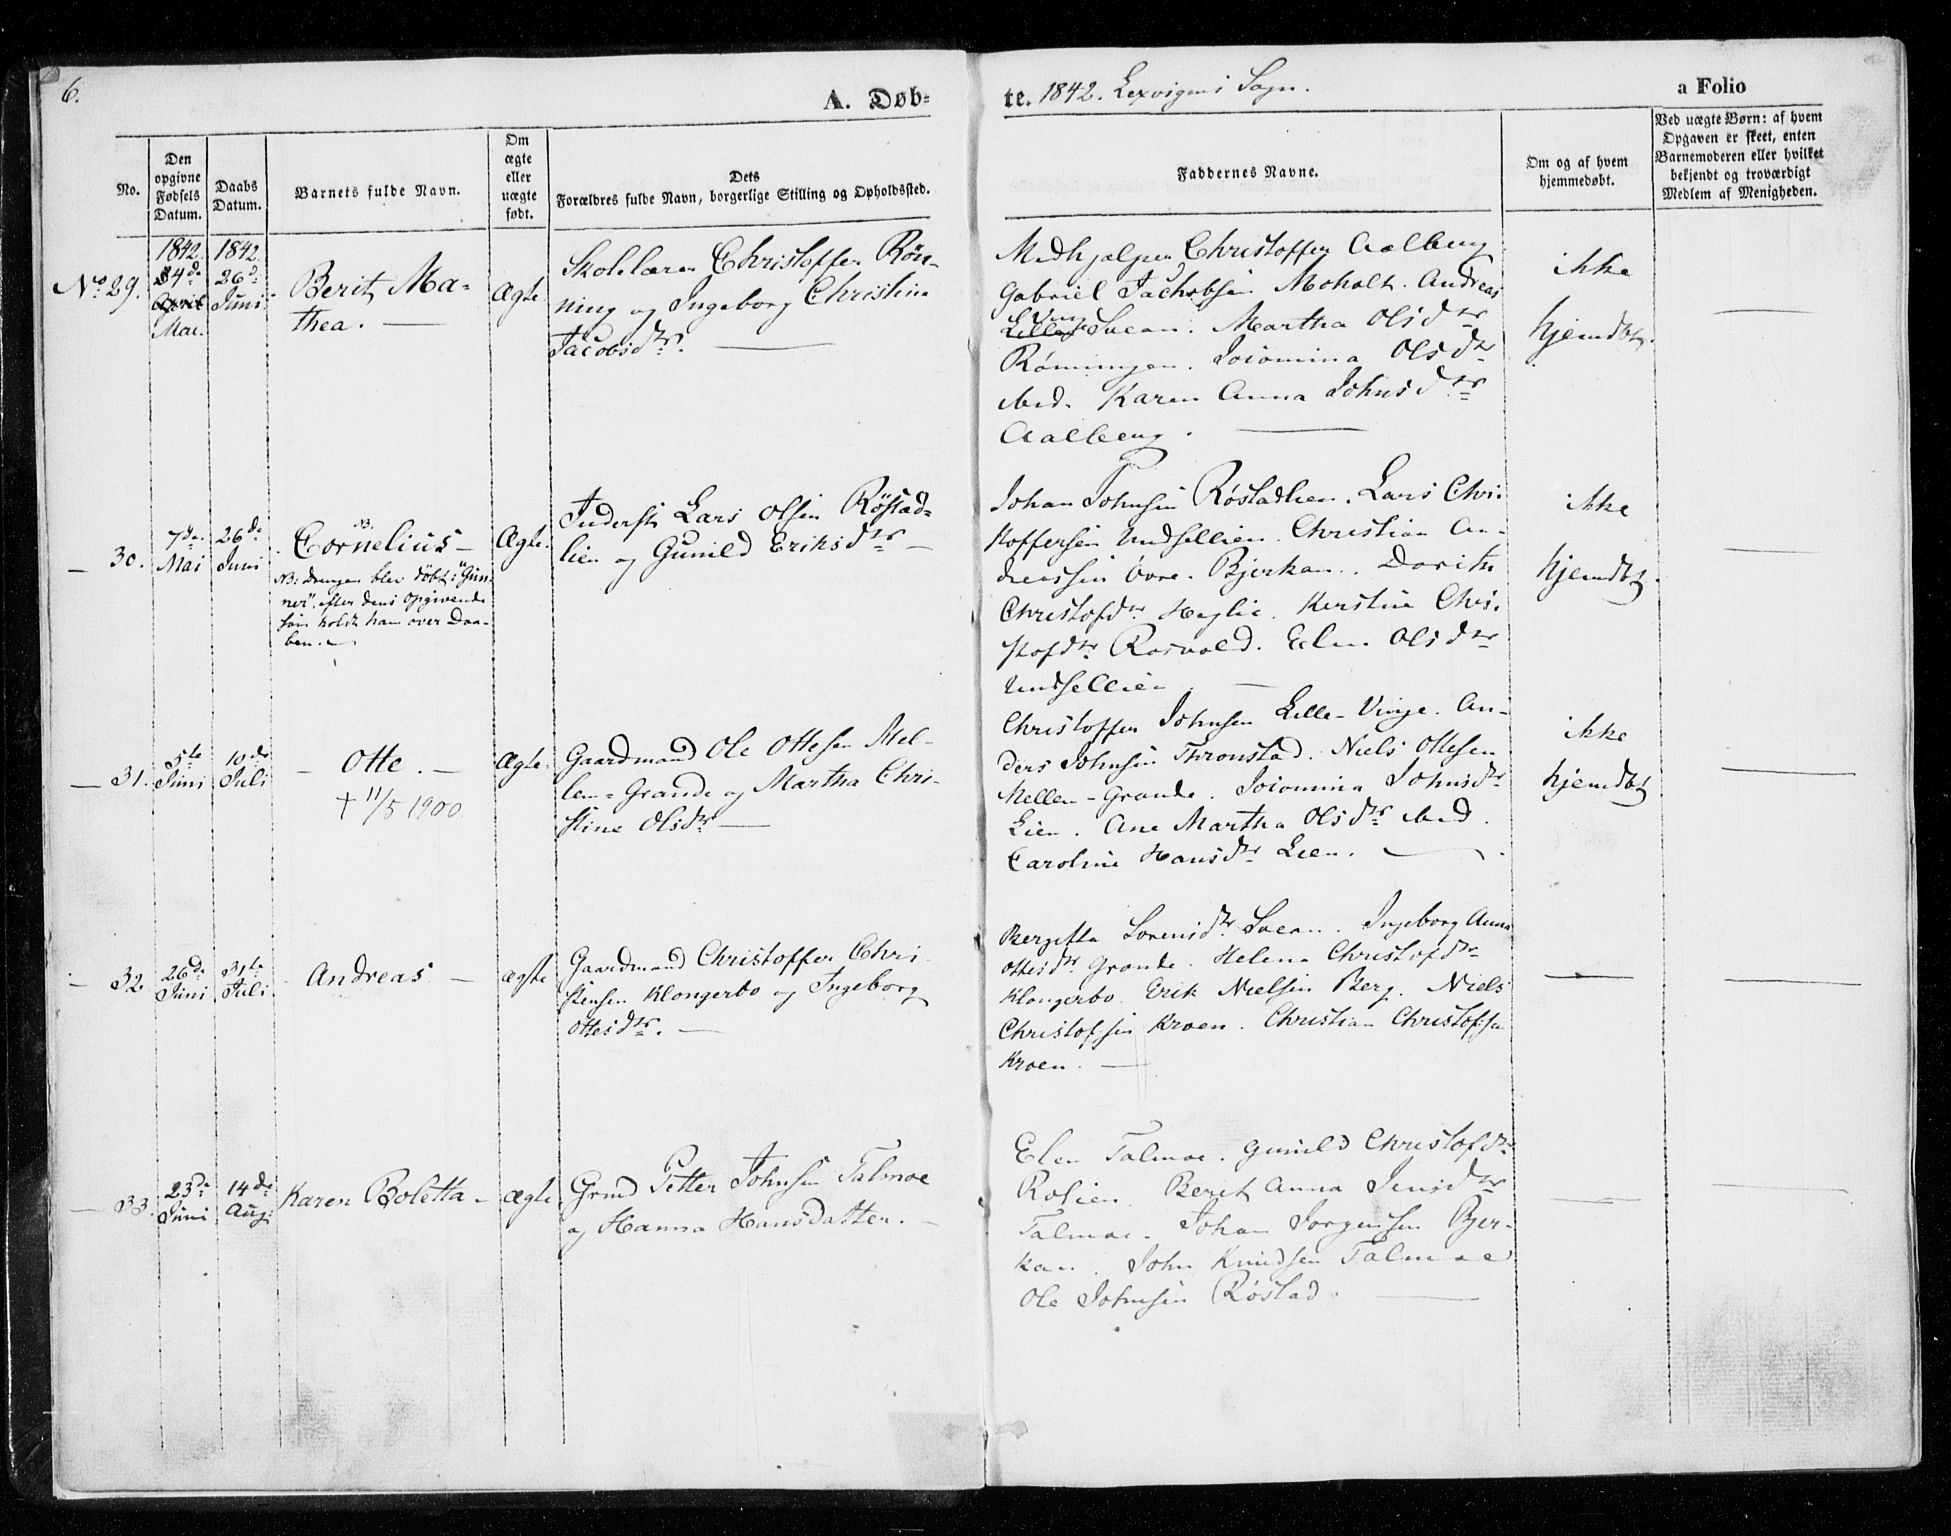 6.
A. Døb-
te. 1842. Lexvigens Sogn.
a Folio
No.
Den
opgivne
Fødsels
Datum.
Daabs
Datum.
Barnets fulde Navn.
Om
ægte
eller
uægte
født.
Dets
Forældres fulde Navn, borgerlige Stilling og Opholdssted.
Faddernes Navne.
Om og af hvem
hjemmedøbt.
Ved uægte Børn: af hvem
Opgaven er skeet, enten
Barnemoderen eller hvilket
bekjendt og troværdigt
Medlem af Menigheden.
No 29.
1842.
24de
April
Mai.
1842.
26de
Juni
Berit Ma-
thea. —
Ægte
Skolelærer Christoffer Rön-
ning og Ingeborg Christine
Jacobsdtr. —
Medhjelper Christoffer Aalberg
Gabriel Jachobsen Moholt. Andreas
Ving
Lille Svean. Martha Olsdtr
Rønningen. Joiomina Olsdtr
ibid. Karen Anna Johnsdtr
Aalberg. —
ikke
hjemdbt.
—
— 30.
7de
Mai
26de
Juni
NB.
Cornelius —
NB: Drengen blev döbt: "Gun-
ner", efter dens Opgivende
som holdt ham over Daa-
ben. —
Ægte.
Inderst Lars Olsen Röstad-
lien og Gunild Eriksdtr —
Johan Johnsen Røstadlien. Lars Chri-
stoffersen Undsellien. Christian An-
dreassen övre Bjerkan. Dorith
Christofdtr Heglie. Kerstine Chri-
stofdtr Rosvold. Elen Olsdtr
Undsellien —
ikke
hjemdbt.
—
— 31.
5te
Juni
10de
Juli
— Otte. —
† 11/5 1900
Ægte.
Gaardmand Ole Ottesen Mel-
lem-Grande og Martha Chri-
stine Olsdtr —
Christoffer Johnsen Lille-Vinge. An-
ders Johnsen Thronstad. Niels Ottesen
Mellem-Grande. Joiomina Johnsdtr
Lien. Ane Martha Olsdtr ibid.
Caroline Hansdtr Lien. —
ikke
hjemdbt
—
— 32
26de
Juni
31te
Juli
Andreas —
ægte
Gaardmand Christoffer Chri-
stensen Klongerbo og Ingeborg
Ottesdtr. —
Bergitta Sorensdtr Svean. Ingeborg Anna
Ottesdtr Grande. Helena Christofdtr
Klongerbo. Erik Nielsen Berg. Niels
Christofsen Kroen. Christian Christofsen
Kroen. —
—
—
— 33.
23de
Juni
14de
Aug.
Karen Boletta —
Ægte
Grmd Petter Johnsen Talmoe
og Hanna Hansdatter. —
Elen Talmoe. Gunild Christofdtr
Rolien. Berit Anna Jensdtr
Talmoe. Johan Jorgensen Bjer-
kan. John Knudsen Talmoe
Ole Johnsen Röstad. —
—
—